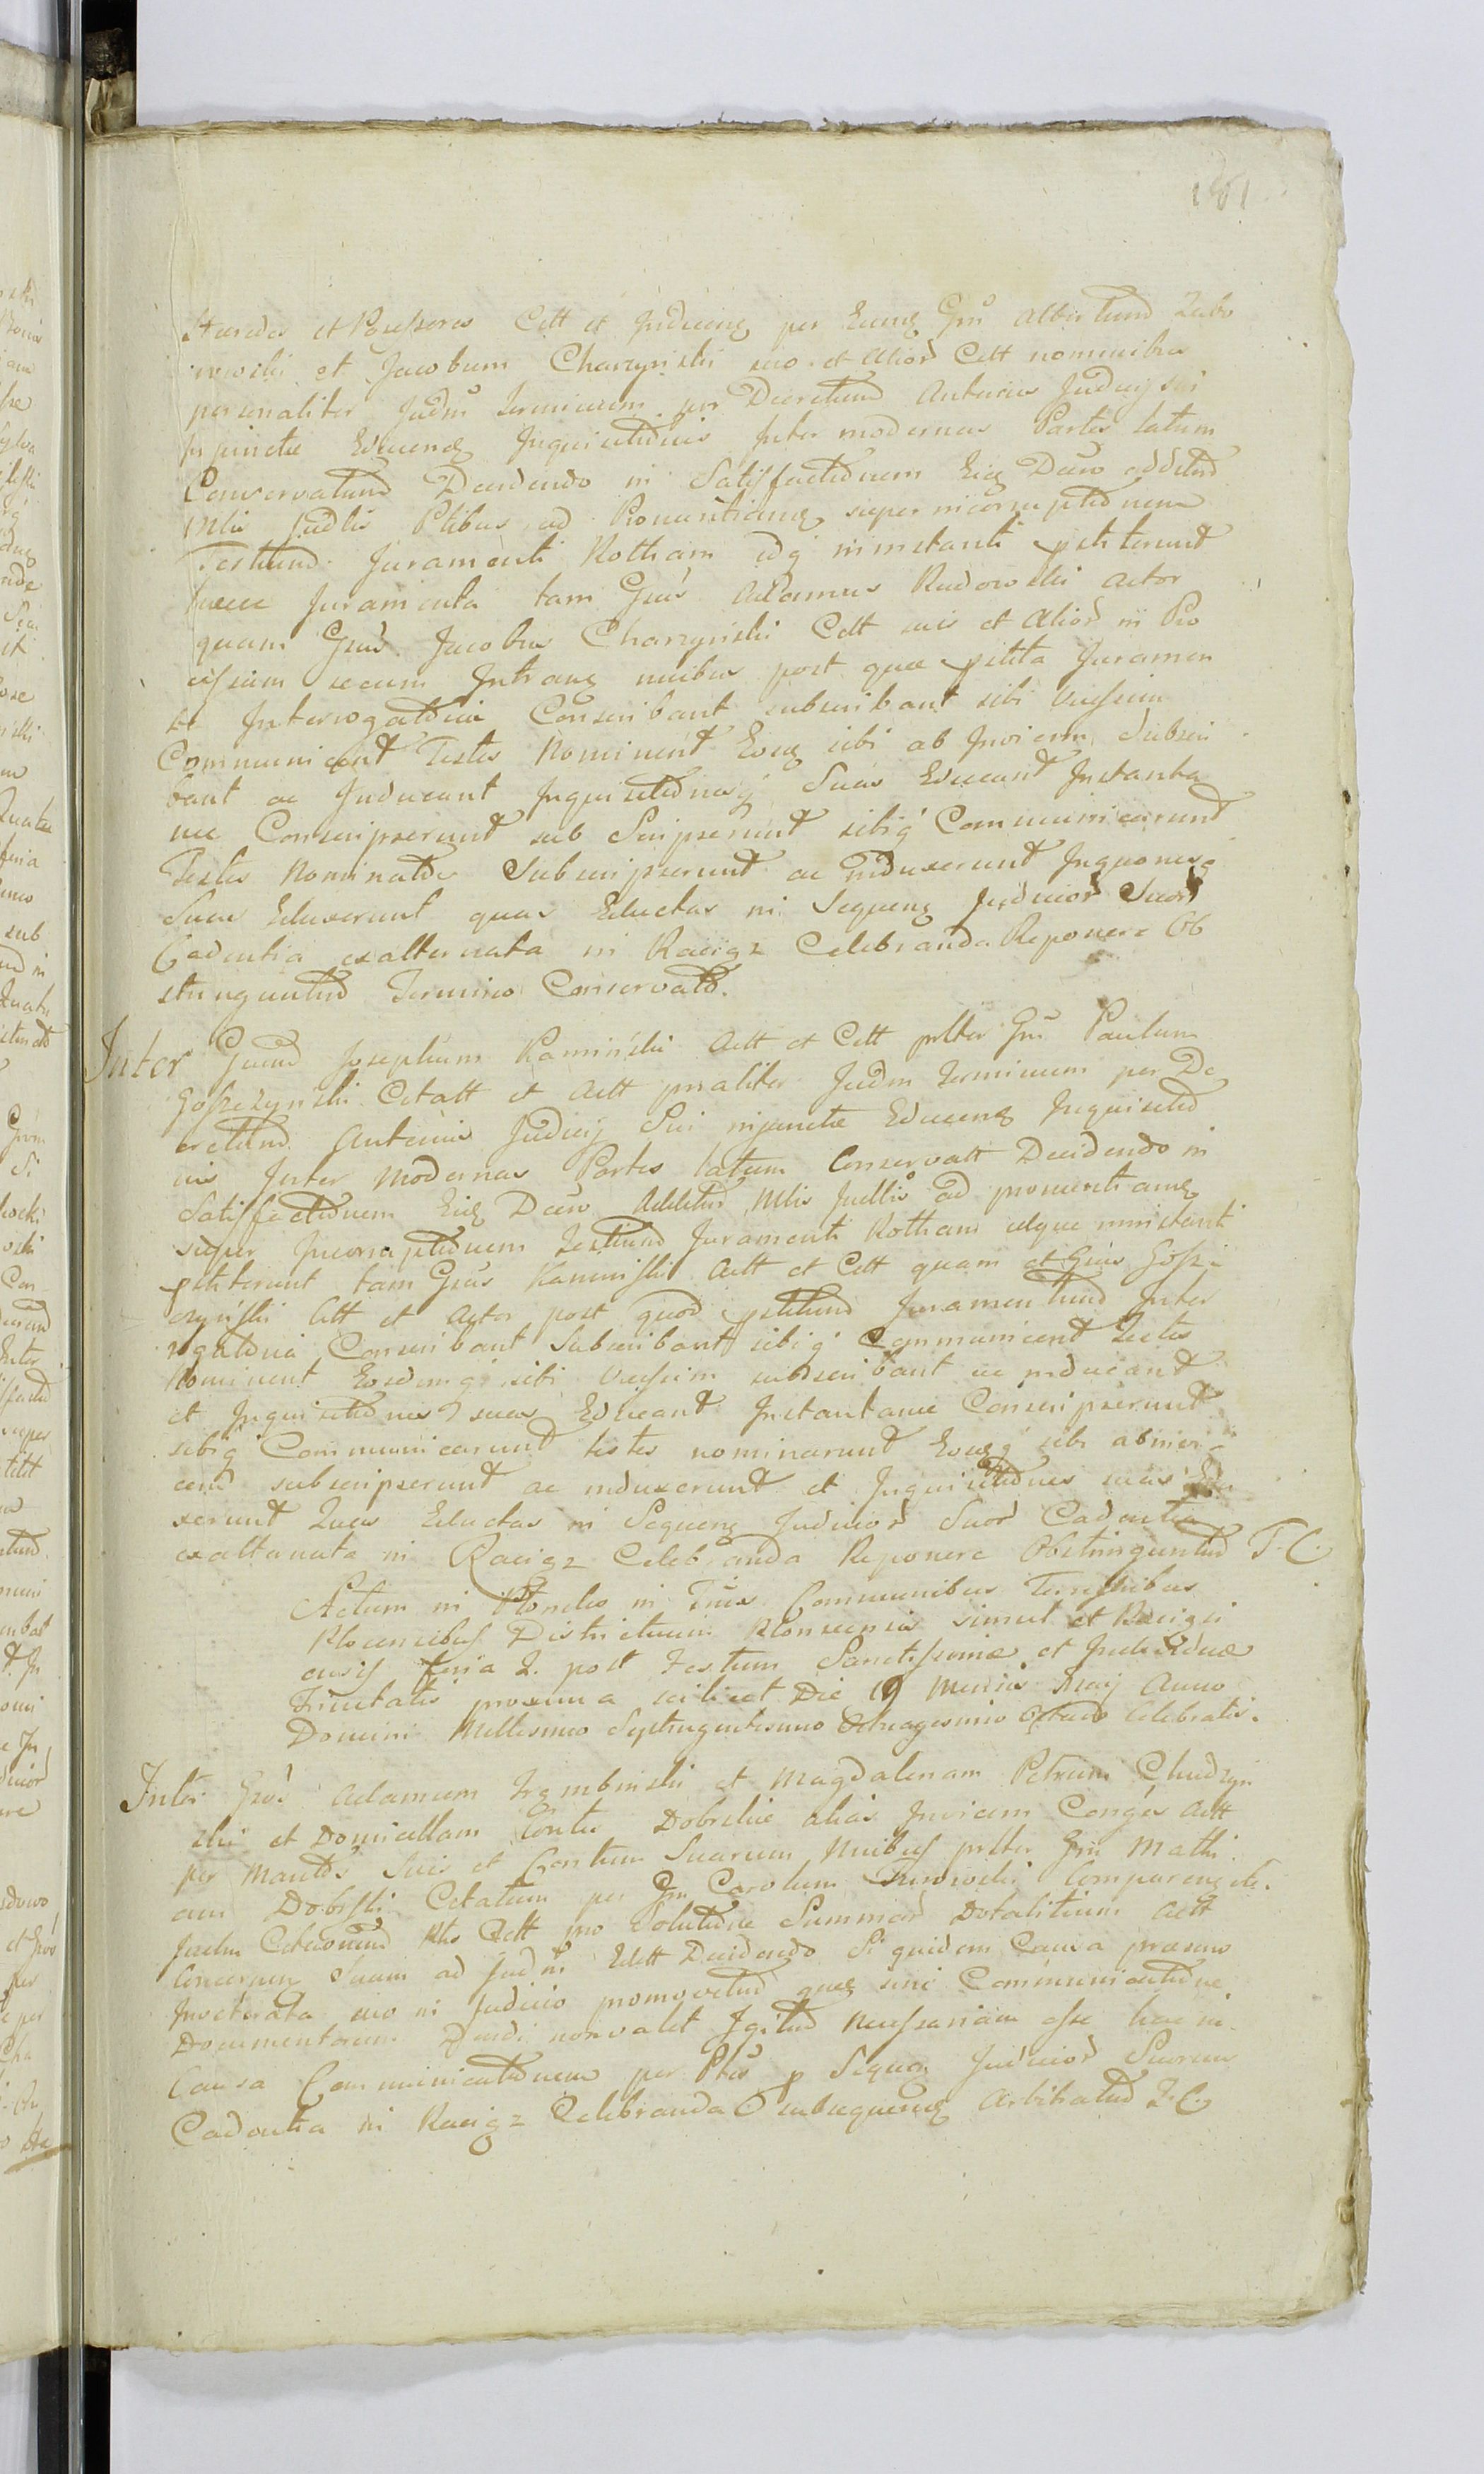 181
Haeredes et Possessores Citt et Judicieg per Eung Gm Albertum Zabo
rowski et Jacobum Charzyński suo et Aliorum Citt nominibus
personaliter Judm Terminum per Decretum Anterius Judicij sui
Injunctae Educendae Inquisitionis Inter modernas Partes latum
Conservatum Decidendo in Satisfactionem Eius Decreti additur
Mtri Judtis Ptibus ad Pronuntiand super incorruptionem
Testium Juramenti Rotham idq instanti petiterunt
haecce Juramenta tam Gsus Adamus Rudowski Actor
quam Gsus Jacobus Charzyński Citt suis et Aliorum in Pro
cessum secum Intrang nuibus post quae petita Juramen
ta Interrogatoria Conscribant subscribant sibi vicissim
Communicent Testes Nominent Eosq sibi ab Invicem Subscri
bant ac Inducant Inquisitionesq Suas Educant Instanta
nee Conscripserunt sub Scripserunt sibiq Communicarunt
Testes Nominatos Subscripserunt ac induxerunt Inquonesq
Suas Eduxerunt quas Eductas in Sequeng Judicior Suor
Cadentia exalternata in Raciąz Celebranda Reponere Ob
stringuntur Termino Conservato.
Inter Gsum Josephum Kamiński Actt et Citt prlter Gm Paulum
Goszczyński Citatt et Actt prsaliter Judm Terminum per De
cretum Anterius Judicij Sui injunctae Educeng Inquisitio
nis Inter Modernas Partes latum Conservatt Decidendo in
Satisfactionem Eius Decreti Additur Mtri Judtis ad pronuntiang
super Incorruptionem Testium Juramenti Rotham idque instanti
petiterunt tam Gsus Kaminski Actt et Citt quam et Gsus Gosz
czyński Citt et Actor post quod petitum Juramentum Inter
rogatoria Conscribant Subscribant sibiq Communicent Testes
Nominent Eosdemq sibi vicissim subscribant ac inducant
et Inquisitiones suas Educant Instantanee Conscripserunt
sibiq Communicarunt testes nominarunt Eosq sibi abinvi
cem subscripserunt ac induxerunt et Inquisitiones suas Edu
xerunt Quas Eductas in Sequeng Judicior Suor Cadentia
exalternata in Raciąz Celebranda Reponere Obstringuntur T. C.
Actum in Płońsko in Tris Communibus Terrestribus
Plocensibus Districtuum Plonscensis simul et Raciązi
ensis feria 2. post Festum Sanctissimae et Individuae
Trinitatis proxima scilicet Die 19 Mensis Maij Anno
Domini Millesimo Septingentesimo Octuagesimo Octavo Celebratis.
Inter Gsos Adamum Trzembinski et Magdalenam Petrum Chudzyn
ski et Domicellam Contes Dobrskie alias Invicem Conges Actt
per Mantos Suis et Contum Suarum Nuibus prlter Gm Mathi
am Dobrski Citatum per Gm Carolum Turowski Comparengte.
Judm Citaonum Rts Citt pro Solutione Summar Dotalitium Actt
Concerneng Suam ad Judm Editt Decidendo Siquidem Causa praesens
Inveterata suo in Judicio promovetur queg sine Communicatione
Documentorum Decidi nonvalet Igitur Necessariam esse hac in
Causa Communicationem per Ptes p Sequen Judicior Suorum
Cadentia in Raciąz Celebranda subsequeng Arbitratur T. C.